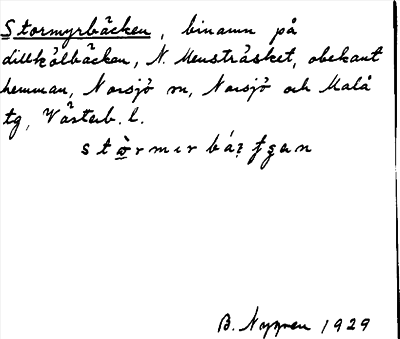 Stormyrbäcken, binamn på
dillkålbäcken, N. Mensträsket, obekant
hemman, Norsjö sn, Norsjö och Malå
tg, Västerb. l.
B. Nygren 1929